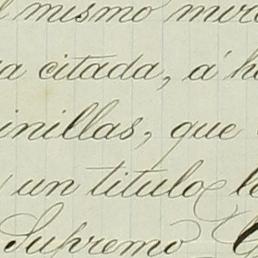 mismo
citada, á
inillas, que
un titulo
Supremo